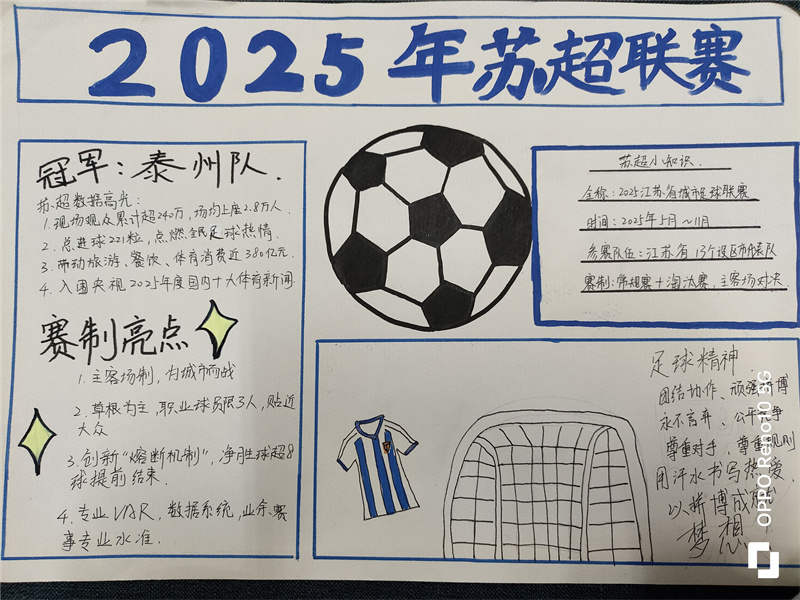 2025年苏超联赛
冠军：泰州队.
苏超数据高光：
1. 现场观众累计超240万，场均上座2.8万人.
2. 总进球221粒，点燃全民足球热情.
3. 带动旅游、餐饮、体育消费近380亿元.
4. 入围央视2025年度国内十大体育新闻
赛制亮点
1. 主客场制，为城市而战
2. 草根为主，职业球员限3人，贴近
大众
3. 创新“熔断机制”，净胜球超8
球提前结束.
4. 专业VAR，数据系统，业余赛
事专业水准.
苏超小知识.
全称：2025江苏省城市足球联赛
时间：2025年5月~11月
参赛队伍：江苏省13个设区市球队
赛制：常规赛+淘汰赛，主客场对决
足球精神
团结协作、顽强拼搏
永不言弃、公平竞争
尊重对手、尊重规则
用汗水书写热爱
以拼搏成就
梦想
OPPO Reno10 5G